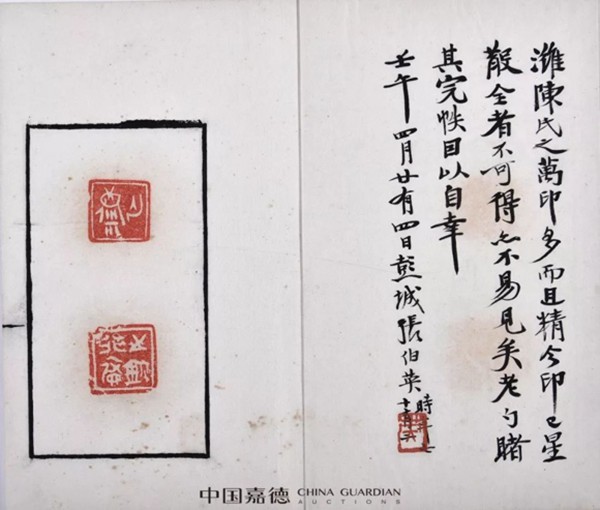 濰陳氏之萬印多而且精今印已星
散全者不可得亦不易見矣老勻睹
其完帙因以自幸
壬午四月廿有四日彭城張伯英時年七十有二
中国嘉德 CHINA GUARDIAN
AUCTIONS